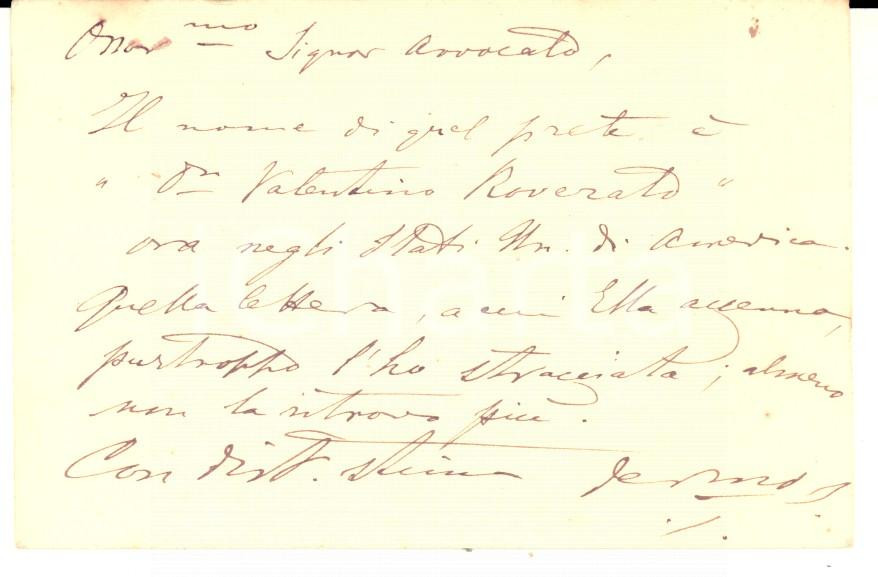 Onor.mo Signor Avvocato,
Il nome di quel prete è
" Dn Valentino Roverato "
ora negli Stati Un. di America.
Quella lettera, a cui Ella accenna,
purtroppo l'ho stracciata; almeno
non la ritrovo più.
Con dist. stima
iCharta